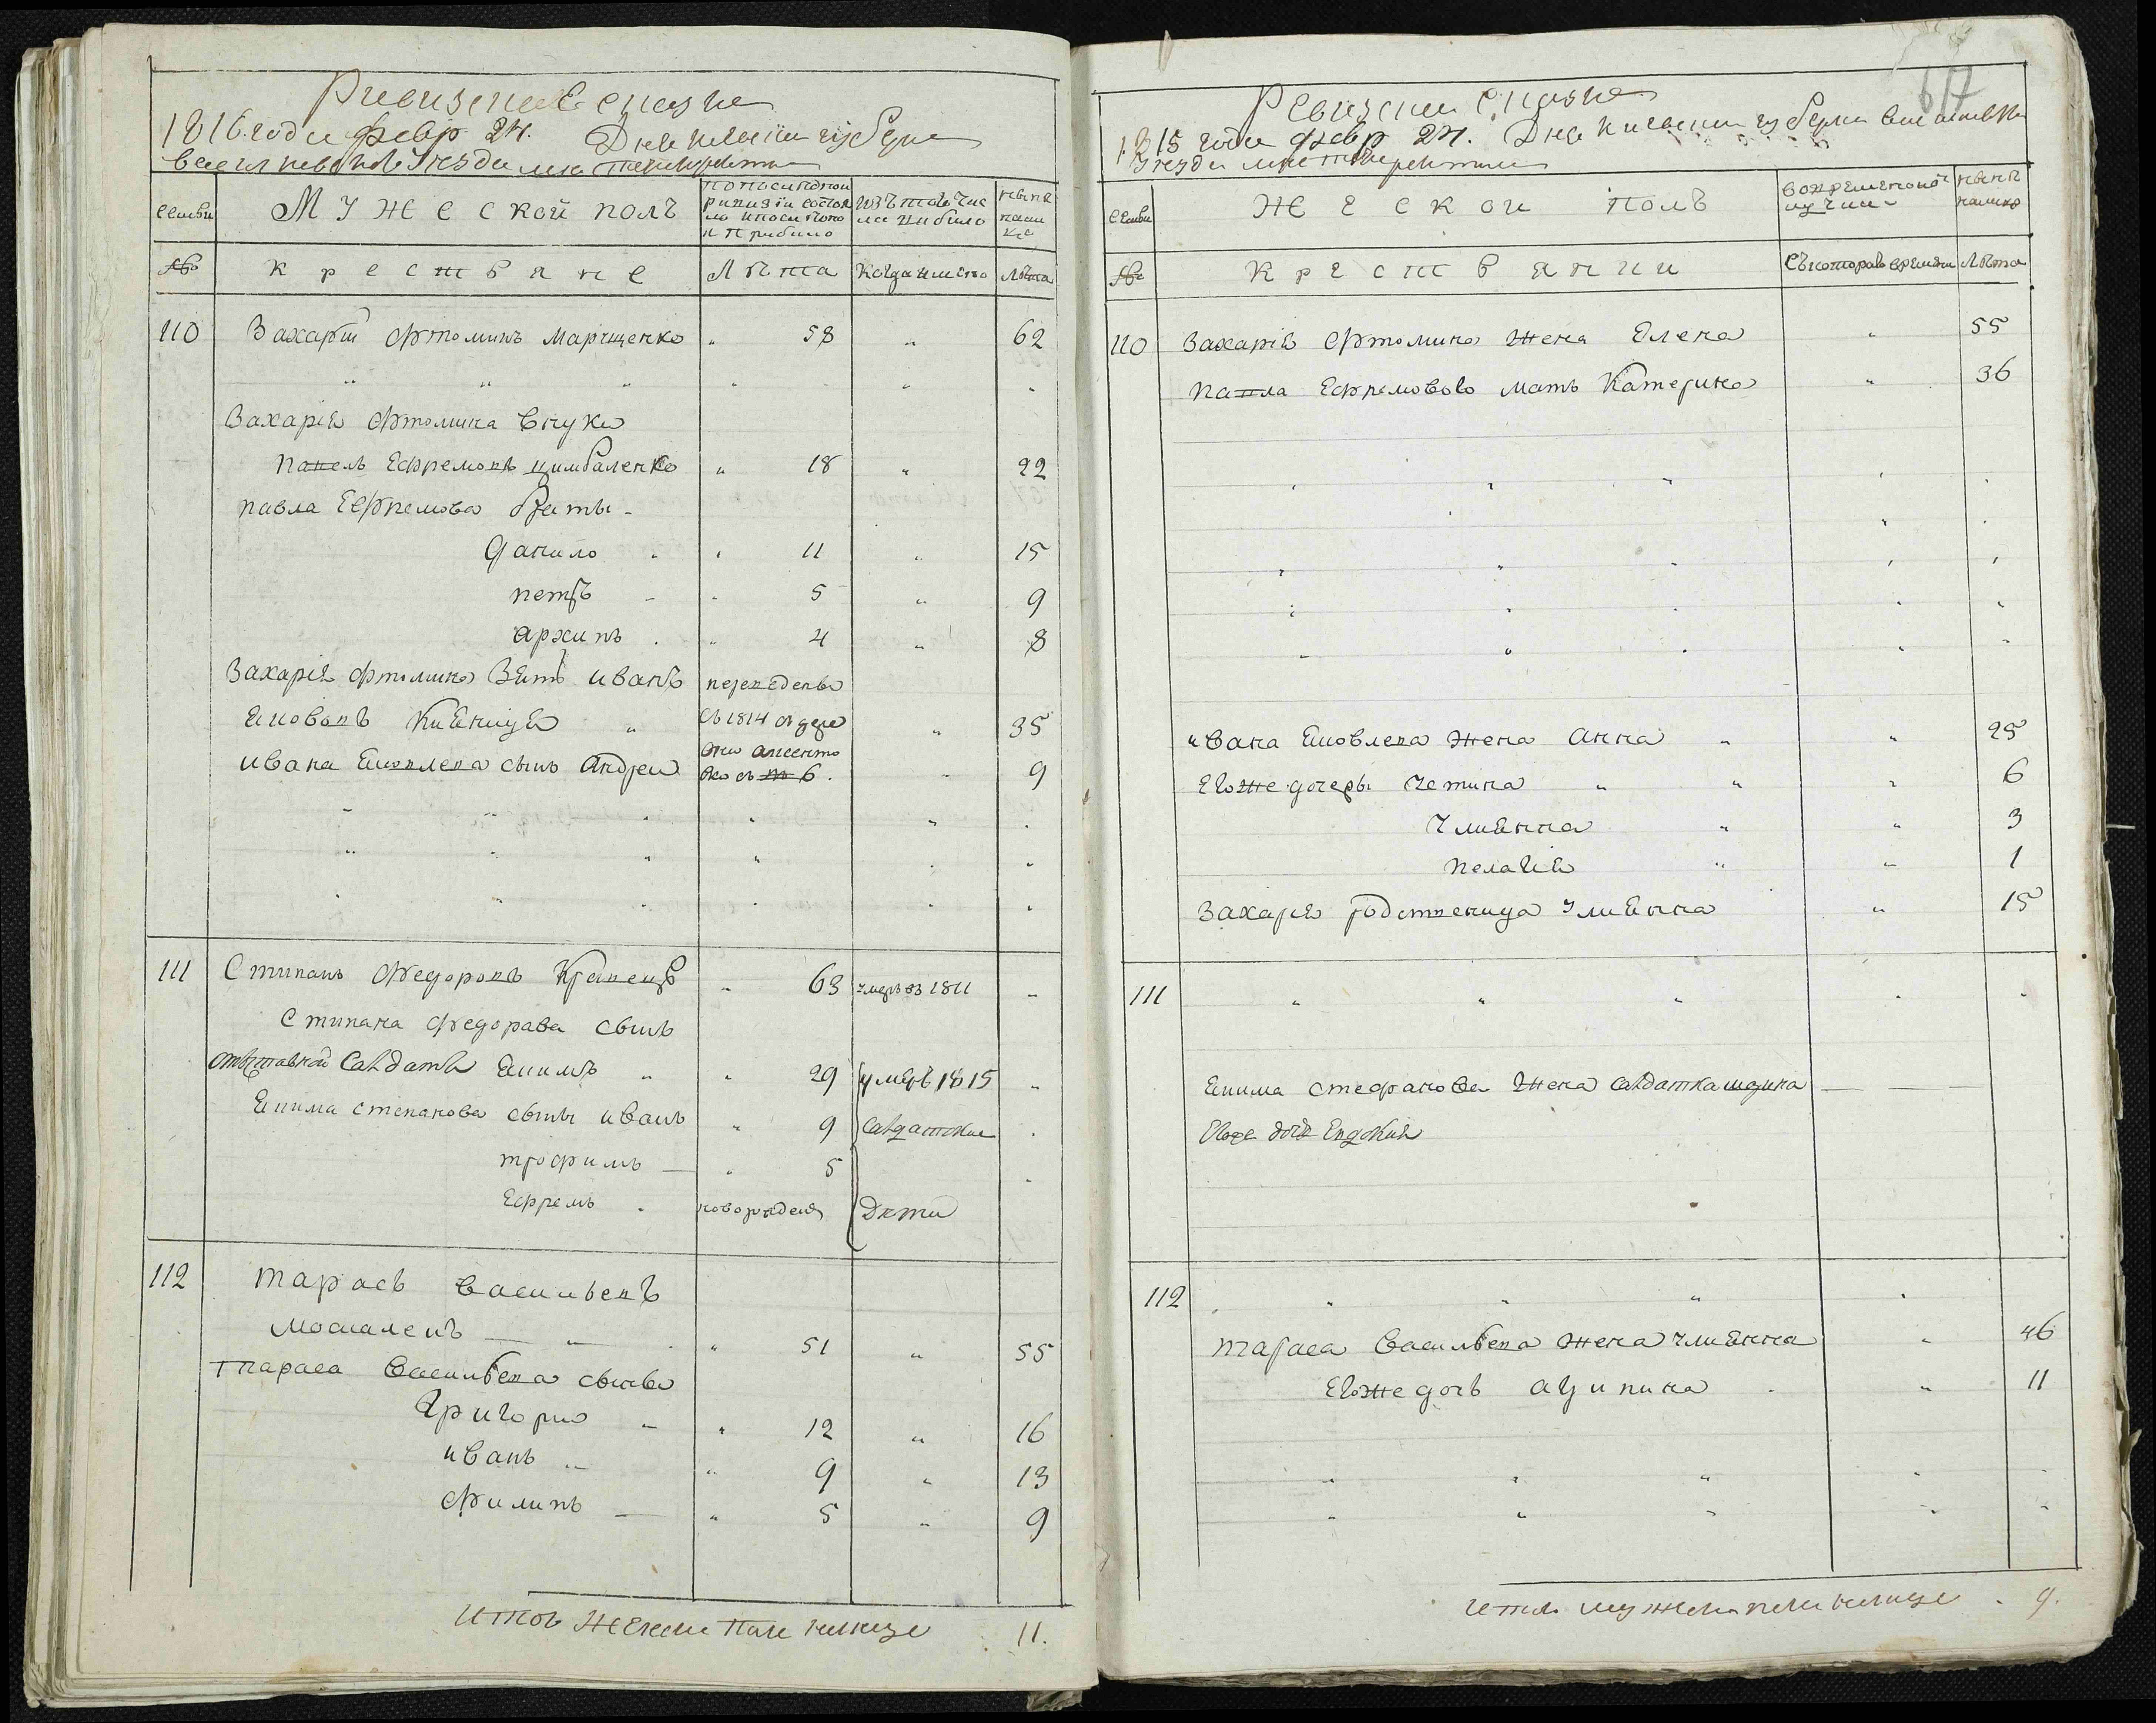 Ревизская Сказка
1816 года февр 24. Дня Киевской губерни
Васильковского уезда места
семьи
Мужеской полъ
по последной ревизіи состояло и после того прибыло
изъ того числа выбыло
ныне налицо
№
крестьяне
Лѣта
когда имено
лѣта
110 Захарій Фтоминъ Марущенко " 58 " 62
Захарія Фтомина внуки
павелъ Ефремовъ цимбаленко " 18 " 22
павла Ефремова браты
данило " 11 " 15
петръ " 5 " 9
архипъ " 4 " 8
Захарія Фтомина Зять иванъ переведенъ
Яковлевъ Кияница съ 1814 " 35
ивана Яковлева сынъ андрей " 9
111 Стипанъ Федоровъ Кравецъ " 63 умеръ въ 1811 "
Стипана Федорова сынъ
отставной Салдатъ Якимъ " 29 умеръ 1815 "
Якима степанова сыны иванъ " 9 Салдатские
трофимъ " 5
Ефремъ новорожденъ Дѣти
112 тарасъ васильевъ
москаленъ " 51 " 55
тараса васильева сынъве
григорио " 12 " 16
иванъ " 9 " 13
филипъ " 5 " 9
Итого налицо 11.
617
Ревизская Сказка
1815 года февр 24. Дня Киевской губерни
уезда места
семьи
Женской полъ
во временной отлучки
ныне налицо
№
крестьянки
Съ котораго времени
лѣта
110 Захарія Фтомина жена Олена " 55
павла Ефремовово мать Катерина " 36
ивана Яковлева жена анна " " 25
Егоже дочеры " " 6
Улиянна " " 3
пелагия " " 1
Захария родственица Улиянна " 15
111
Якима стефанова Жена салдатка
Егоже дочь Евдокия
112
тараса васильева жена улиянна " 46
Егоже дочь " 11
Итого налицо 9.